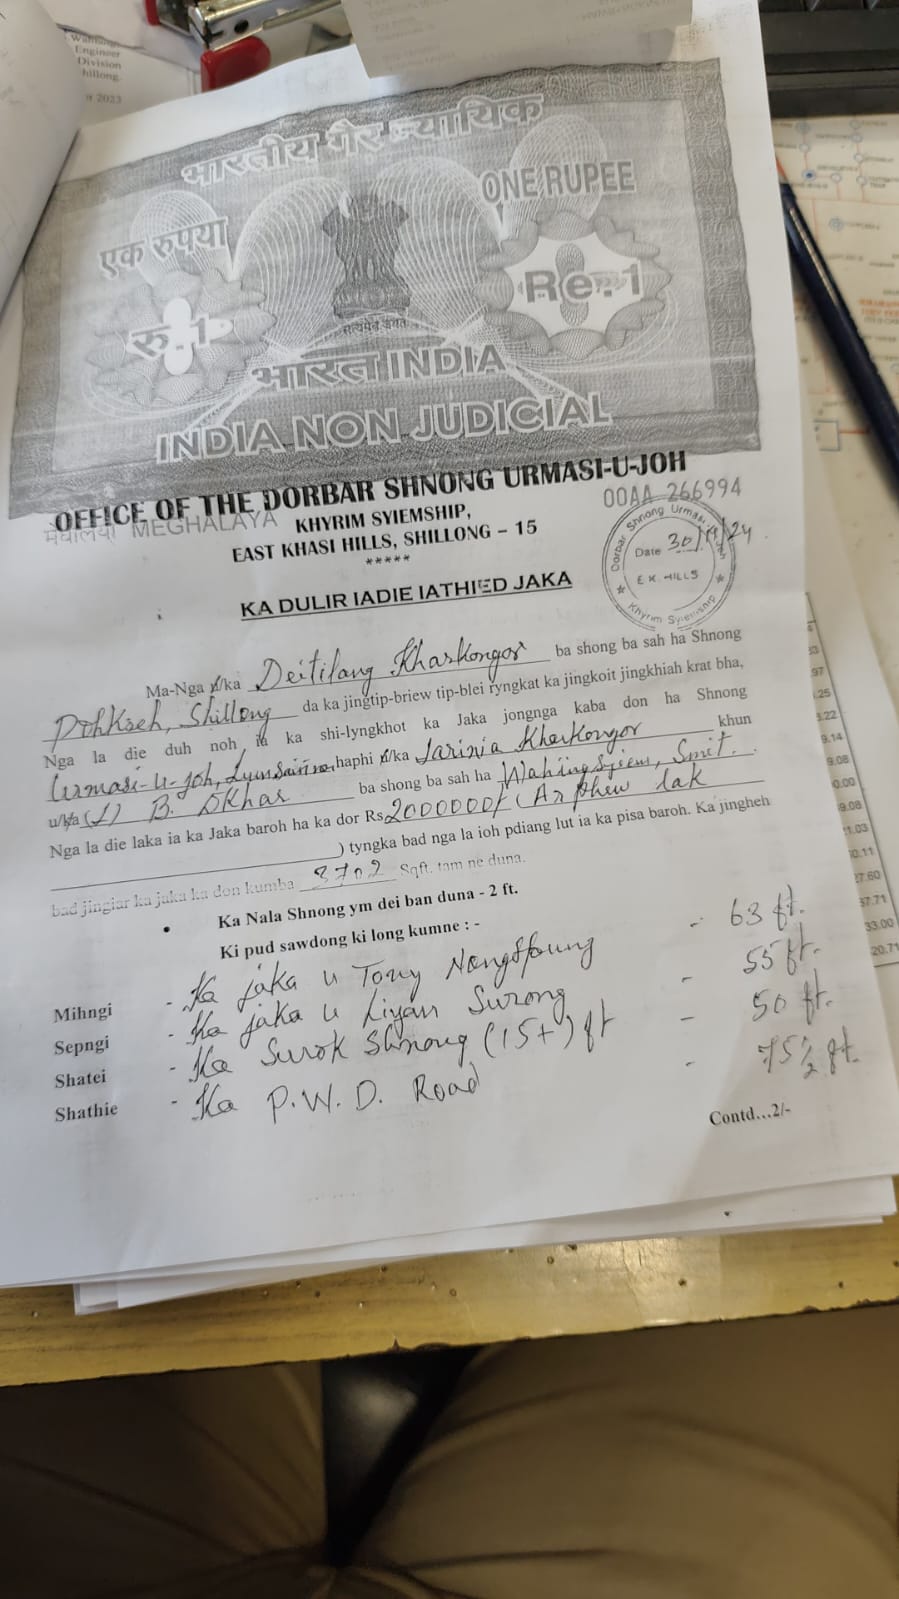 Engineer
Division
hillong.
2023
भारतीय गैर न्यायिक
एक रुपया
ONE RUPEE
रु.1
Re.1
सत्यमेव जयते
भारत INDIA
INDIA NON JUDICIAL
OFFICE OF THE DORBAR SHNONG URMASI-U-JOH
मेघालय MEGHALAYA
00AA 266994
KHYRIM SYIEMSHIP,
EAST KHASI HILLS, SHILLONG – 15
*****
Dorbar Shnong Urmasi-U-Joh
Date 30/ /24
E.K. HILLS
Khyrim Syiemship
KA DULIR IADIE IATHIED JAKA
Ma-Nga u/ka Deitilang Kharkongor ba shong ba sah ha Shnong
Pohkseh, Shillong da ka jingtip-briew tip-blei ryngkat ka jingkoit jingkhiah krat bha,
Nga la die duh noh ia ka shi-lyngkhot ka Jaka jongnga kaba don ha Shnong
Urmasi-U-Joh, haphi u/ka Larinia Kharkongor khun
u/ka (L) B. Dkhar ba shong ba sah ha Smit.
Nga la die laka ia ka Jaka baroh ha ka dor Rs 2000000/- (Ar phew lak
) tyngka bad nga la ioh pdiang lut ia ka pisa baroh. Ka jingheh
bad jingiar ka jaka ka don kumba 3702 Sqft. tam ne duna.
• Ka Nala Shnong ym dei ban duna - 2 ft.
Ki pud sawdong ki long kumne : -
Mihngi - Ka jaka u Tony - 63 ft.
Sepngi - Ka jaka u Surong - 55 ft.
Shatei - Ka Surok Shnong (15+) ft - 50 ft.
Shathie - Ka P.W.D. Road - 75 1/2 ft.
Contd...2/-
.97
.25
3.22
9.14
9.08
0.00
9.08
1.03
0.11
27.60
57.71
33.00
20.71